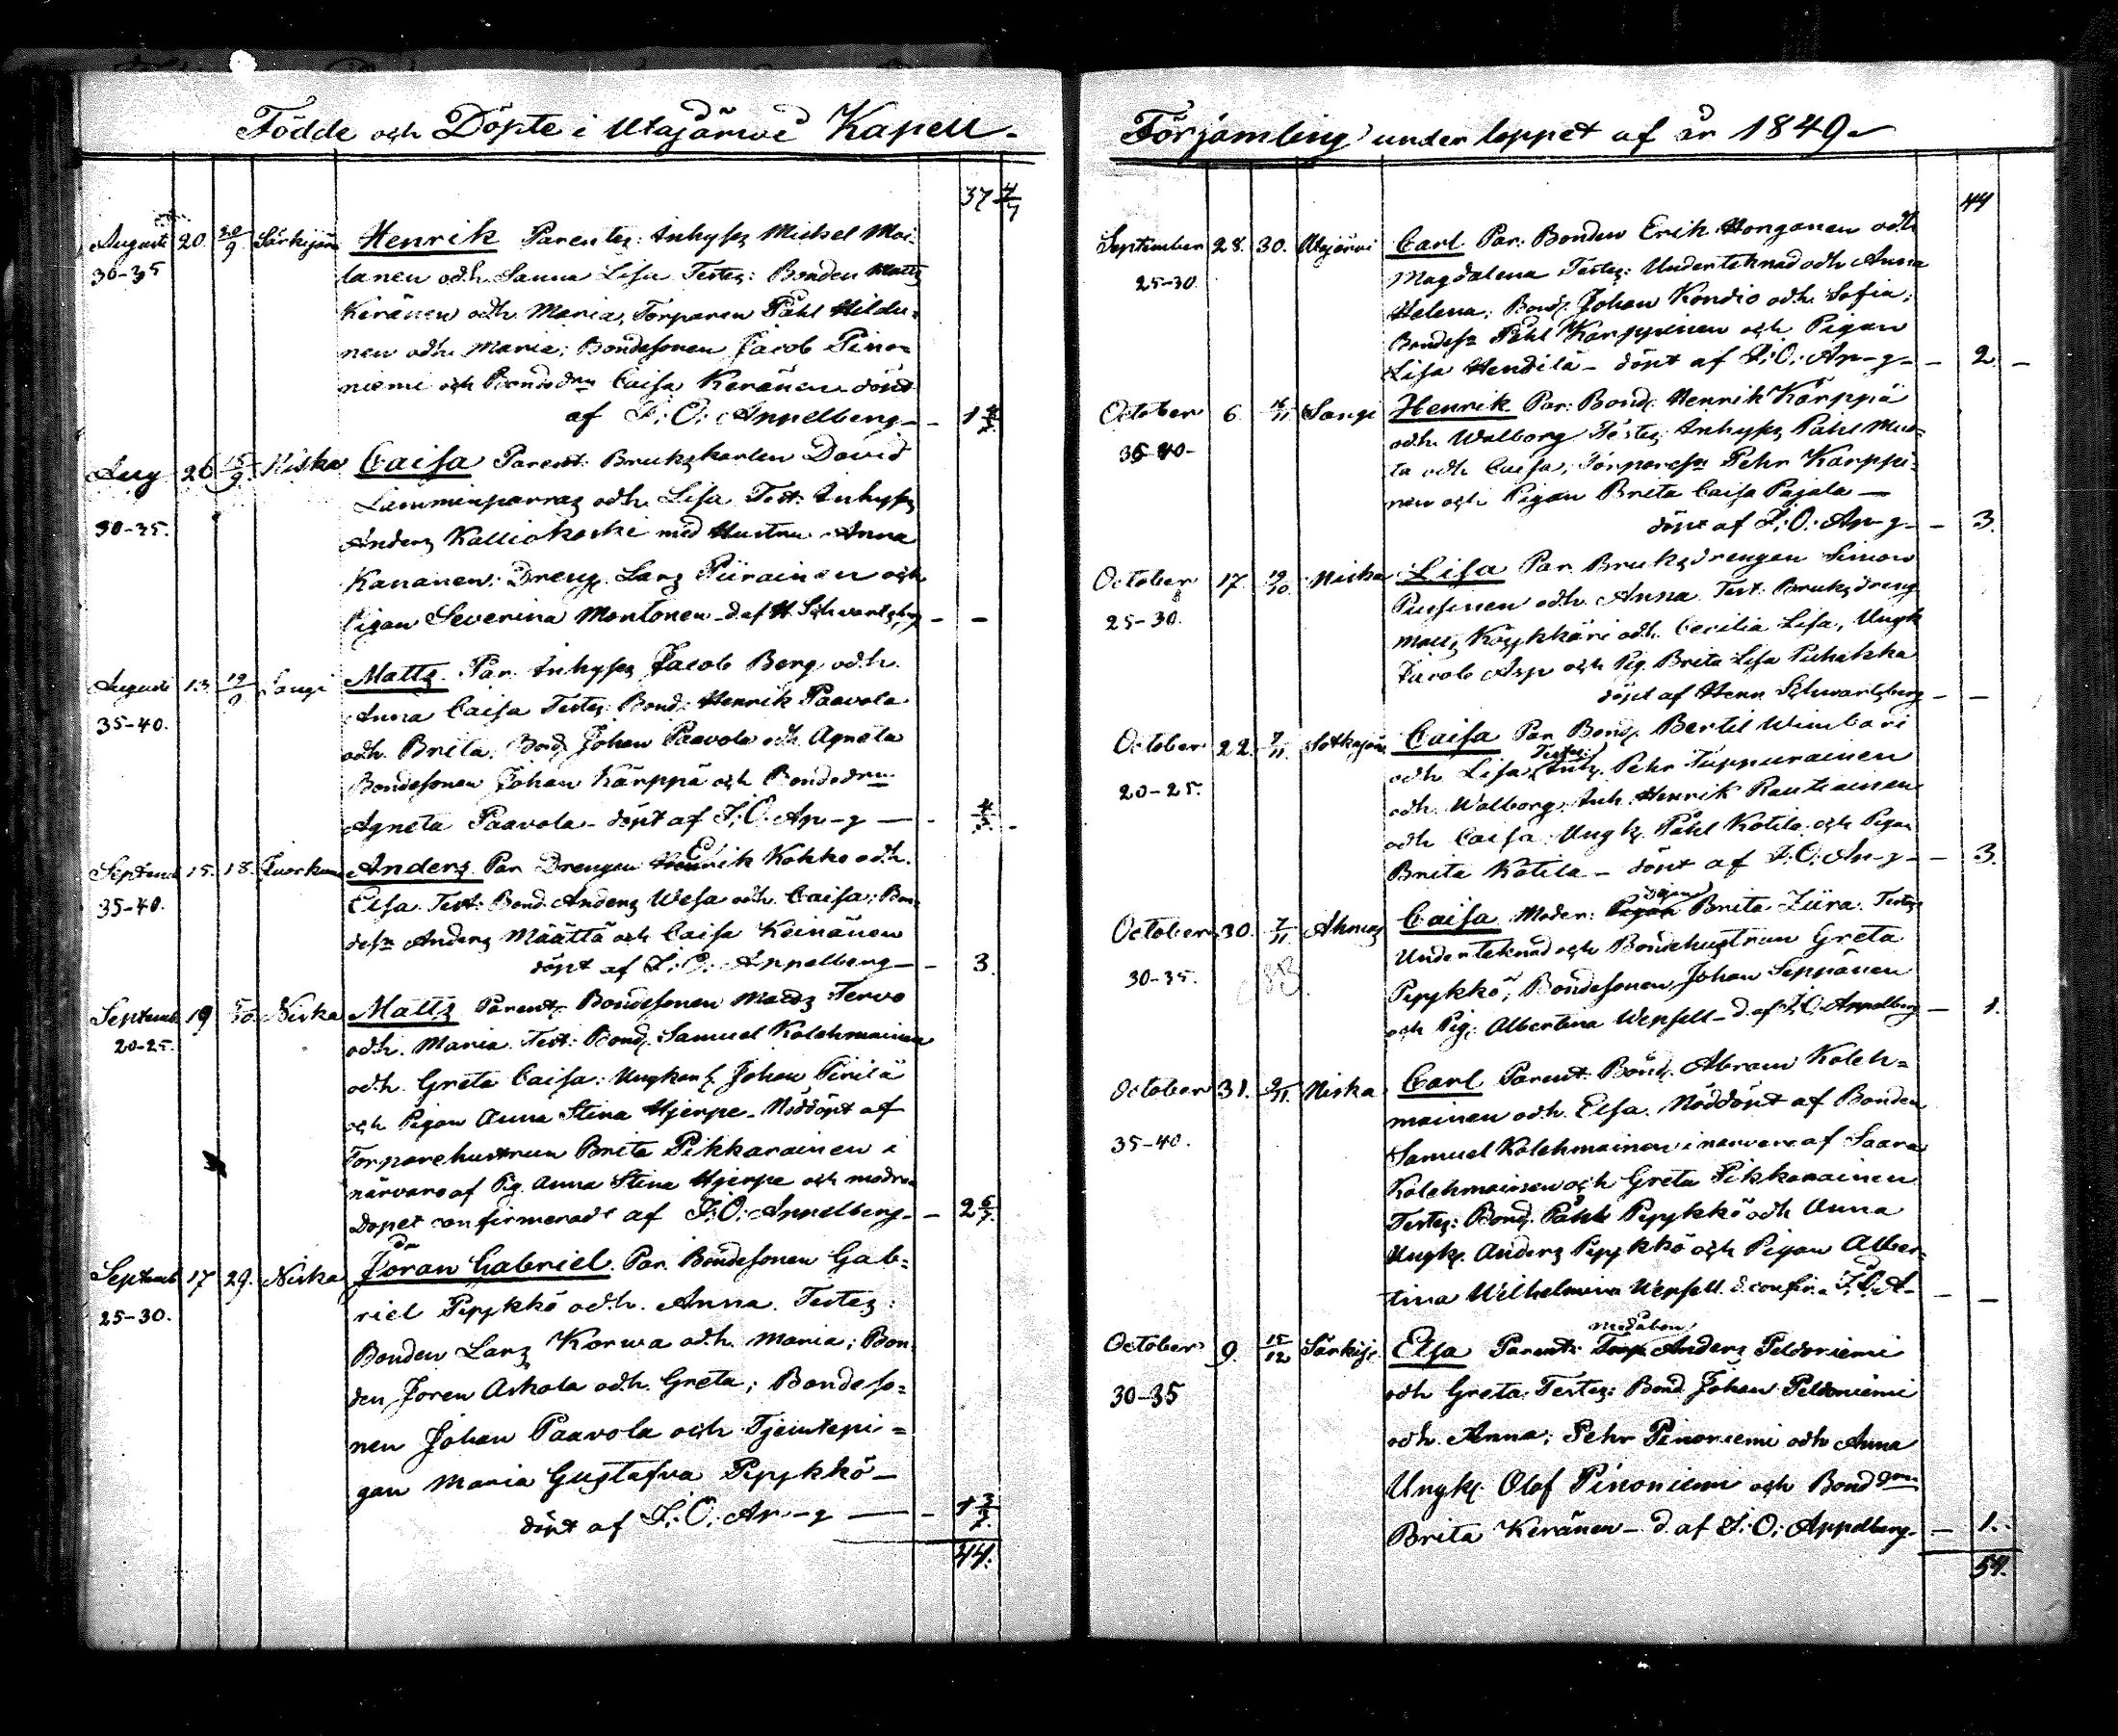 Födde och Döpte i Utajärwi Kapell-
37 4/7
Augusti 20. 20/9 Särkijärvi Henrik Parentes: Inhyses Michel Moi-
30-35 lanen och h. Sanna Lisa Testes: Bonden Matts
Keränen och h. Maria, Torparen Påhl Hildu-
nen och h. Maria; Bondesonen Jacob Pino-
niemi och Bondedrn Caisa Keränen döpt
af J: O: Appelberg - 1
Aug 26 15/9. Niska Caisa Parent: Bruks karlen David
Lumminparras och h. Lisa Test: Inhyses
30-35. Anders Kalliokoski med Hustru Anna
Kananen: Dreng. Lars Piirainen och
Pigan Severina Montonen d. af H. Schwartzberg - -
Augusti 13. 19/9 Sangi Matts. Par. Inhyses Jacob Berg och h.
35-40. Anna Caisa Testes: Bond: Henrik Paavola
och h. Brita; Bond Johan Paavola och h. Agneta
Bondesonen Johan Kärppä och Bondedrn
Agneta Paavola - döpt af J: O: Ap-g - - 4/7.
Septemb 15. 18. Juorkuna Anders Par Drengen Erik Kokko och h.
35-40. Elsa Test: Bond Anders Wesa och h. Caisa; Bon-
des: Anders Määttä och Caisa Keinänen
döpt af J: O: Appelberg - - 3.
Septemb 19 Niska Matts Parent: Bondesonen Matts Tervo
20-25. och h. Maria. Test: Bond. Samuel Kolehmainen
och h. Greta Caisa: Ungkarl. Johan Pirilä
och Pigan Anna Stina Hjerpe - Nöddöpt af
Torparehustrun Brita Pikkarainen i
närvaro af Pig. Anna Stina Hjerpe och modren
Dopet confirmeradt af J: O: Appelberg. - 2 6/7.
Septemb 17 29. Niska Jöran Gabriel. Par. Bondesonen Gab-
25-30. riel Pyykkö och h. Anna. Testes:
Bonden Lars Korwa och h. Maria; Bon-
den Jören Askola och h. Greta; Bondeso-
nen Johan Paavola och Tjenstepi-
gan Maria Gustafva Pyykkö -
döpt af J: O: Ap-g - - 1 3/7.
44.
Församling under loppet af år 1849.
44
September 28. 30. Utajärvi Carl Par: Bonden Erik Honganen och h
25-30. Magdalena Testes: Undertecknad och h Anna
Helena; Bond: Johan Kondio och h. Sofia;
Bondes: Påhl Karppinen och Pigan
Lisa Hendilä - döpt af J: O: Ap-g - - 2. -
October 6 Sangi Henrik Par: Bond: Henrik Kärppä
35-40- och h. Walborg Testes: Inhyses Påhl Mus-
ta och h Caisa; Torpares: Pehr Karppi-
nen och Pigan Brita Caisa Pajala -
döpt af J: O: Ap-g - - 3.
October 17. 19/10. Niska Lisa Par Bruksdrengen Simon
25-30. och h. Anna Test: Bruksdreng
och h. Cecilia Lisa, Ungk
Jacob Asp och Pig. Brita Lisa Puhakka
döpt af Herr Schwartzberg - -
October 22. 7/11. Sotkajärvi Caisa Par Bond. Bertil Wimbari
20-25. och h Lisa Testes: Inh. Pehr Tuppurainen
och h. Walborg; Inh. Henrik Rautiainen
och h Caisa. Ungk. Påhl Kotila och Pigan
Brita Kotila - döpt af J: O: Ap-g - - 3.
October 30. 7/11. Ahmas Caisa Moder: Pigan Brita Ziira. Testes
30-35. Undertecknad och Bondehustrun Greta
Pyykkö; Bondesonen Johan Seppänen
och Pig: Albertina Wepsell - d. af J: O. Appelberg - 1.
October 31. Niska Carl Parent: Bond. Abram Koleh-
mainen och h. Elsa. Nöddöpt af Bonden
35-40. Samuel Kolehmainen i narvaro af Saara
Kolehmainen och Greta Pikkarainen
Testes: Bond. Påhl Pyykkö och h Anna
Ungk. Anders Pyykkö och Pigan Alber-
tina Wilhelmina Wepsell. d. confir. J. O. A- - -
October 9. 15/12 Särkijä Elsa Parent: Torp Anders Peldoniemi
30-35 och h Greta. Testes: Bond Johan Peldoniemi
och h. Anna; Pehr Pinoniemi och h Anna
Ungk. Olof Pinoniemi och Bonddrn
Brita Keränen - d. af J: O: Appelberg. - 1.
54.